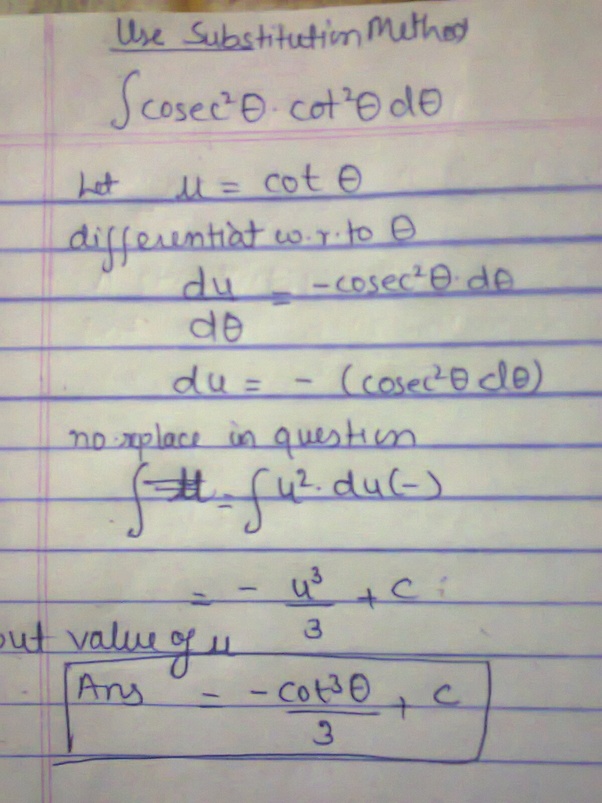 Use Substitution Method
∫ cosec²θ · cot²θ dθ
Let u = cot θ
differentiat w.r.to θ
du/dθ = -cosec²θ·dθ
du = - (cosec²θ dθ)
no replace in question
∫ = ∫ u² · du(-)
= - u³/3 + c
put value of u
Ans = -cot³θ/3 + c